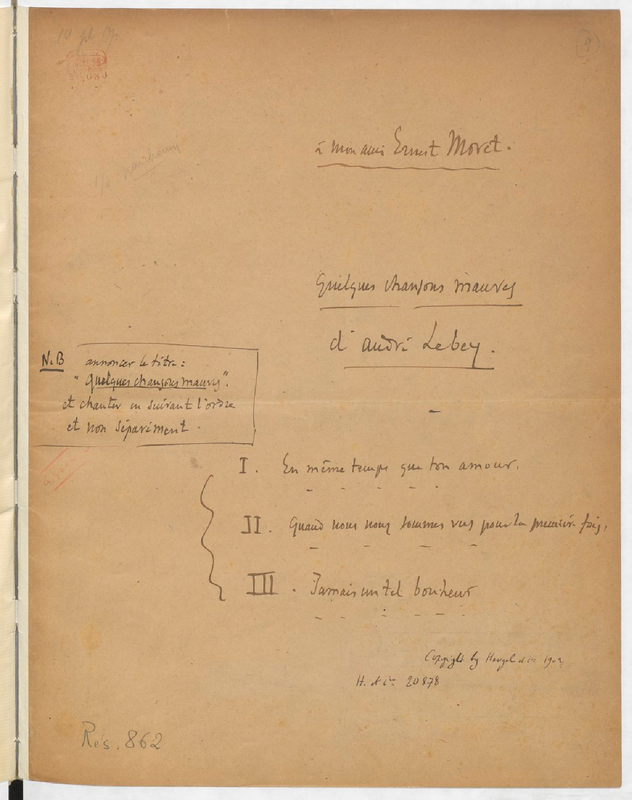 à mon ami Ernest Moret.
Quelques chansons mauves
d'André Lebey.
N.B annoncer le titre :
"Quelques chansons mauves".
et chanter en suivant l'ordre
et non séparément.
I. En même temps que ton amour.
II. Quand nous nous sommes vus pour la première fois,
III. Jamais un tel bonheur
Copyright by Heugel & Cie
H. et Cie 20878
Rés. 862